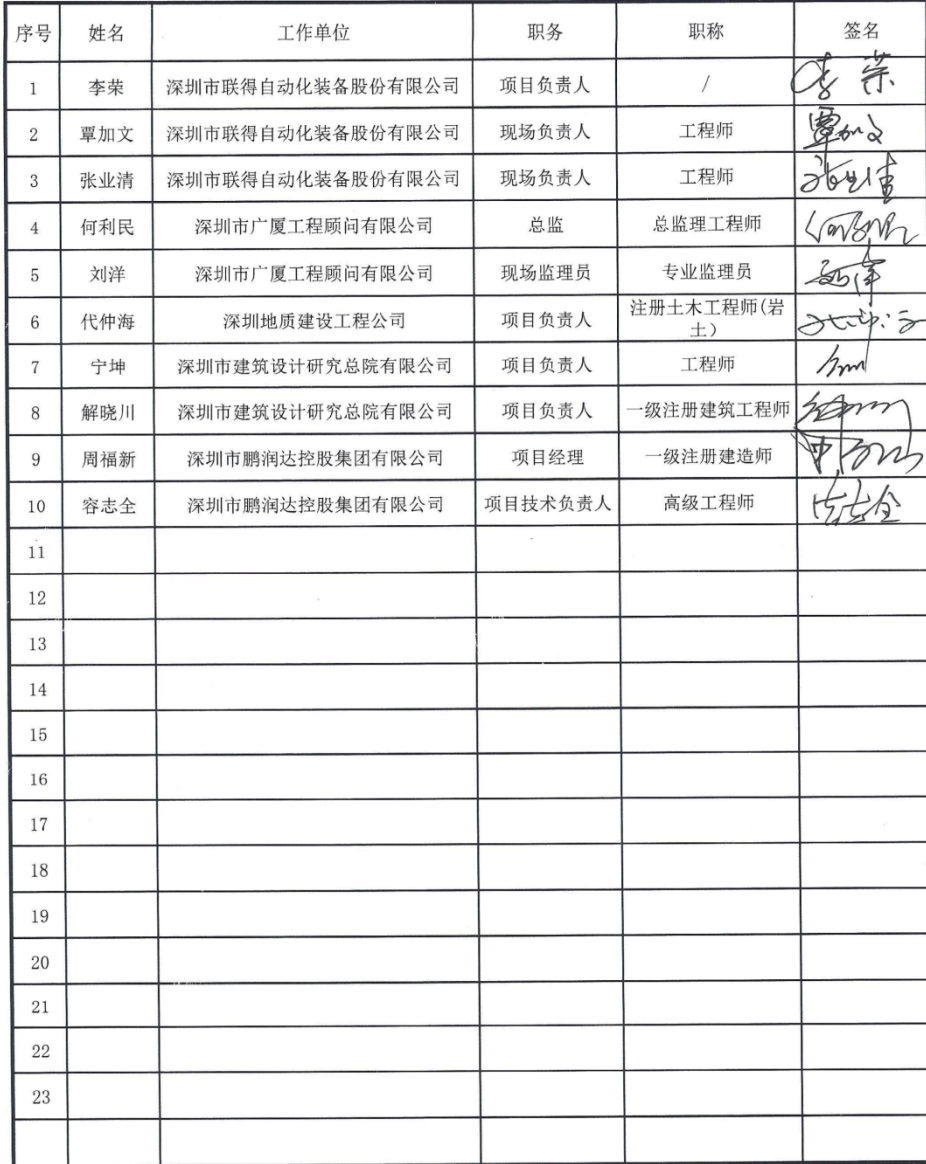 序号 姓名 工作单位 职务 职称 签名
1 李荣 深圳市联得自动化装备股份有限公司 项目负责人 / 李荣
2 覃加文 深圳市联得自动化装备股份有限公司 现场负责人 工程师 覃加文
3 张业清 深圳市联得自动化装备股份有限公司 现场负责人 工程师
4 何利民 深圳市广厦工程顾问有限公司 总监 总监理工程师
5 刘洋 深圳市广厦工程顾问有限公司 现场监理员 专业监理员
6 代仲海 深圳地质建设工程公司 项目负责人 注册土木工程师(岩
土）
7 宁坤 深圳市建筑设计研究总院有限公司 项目负责人 工程师
8 解晓川 深圳市建筑设计研究总院有限公司 项目负责人 一级注册建筑工程师
9 周福新 深圳市鹏润达控股集团有限公司 项目经理 一级注册建造师
10 容志全 深圳市鹏润达控股集团有限公司 项目技术负责人 高级工程师
11
12
13
14
15
16
17
18
19
20
21
22
23